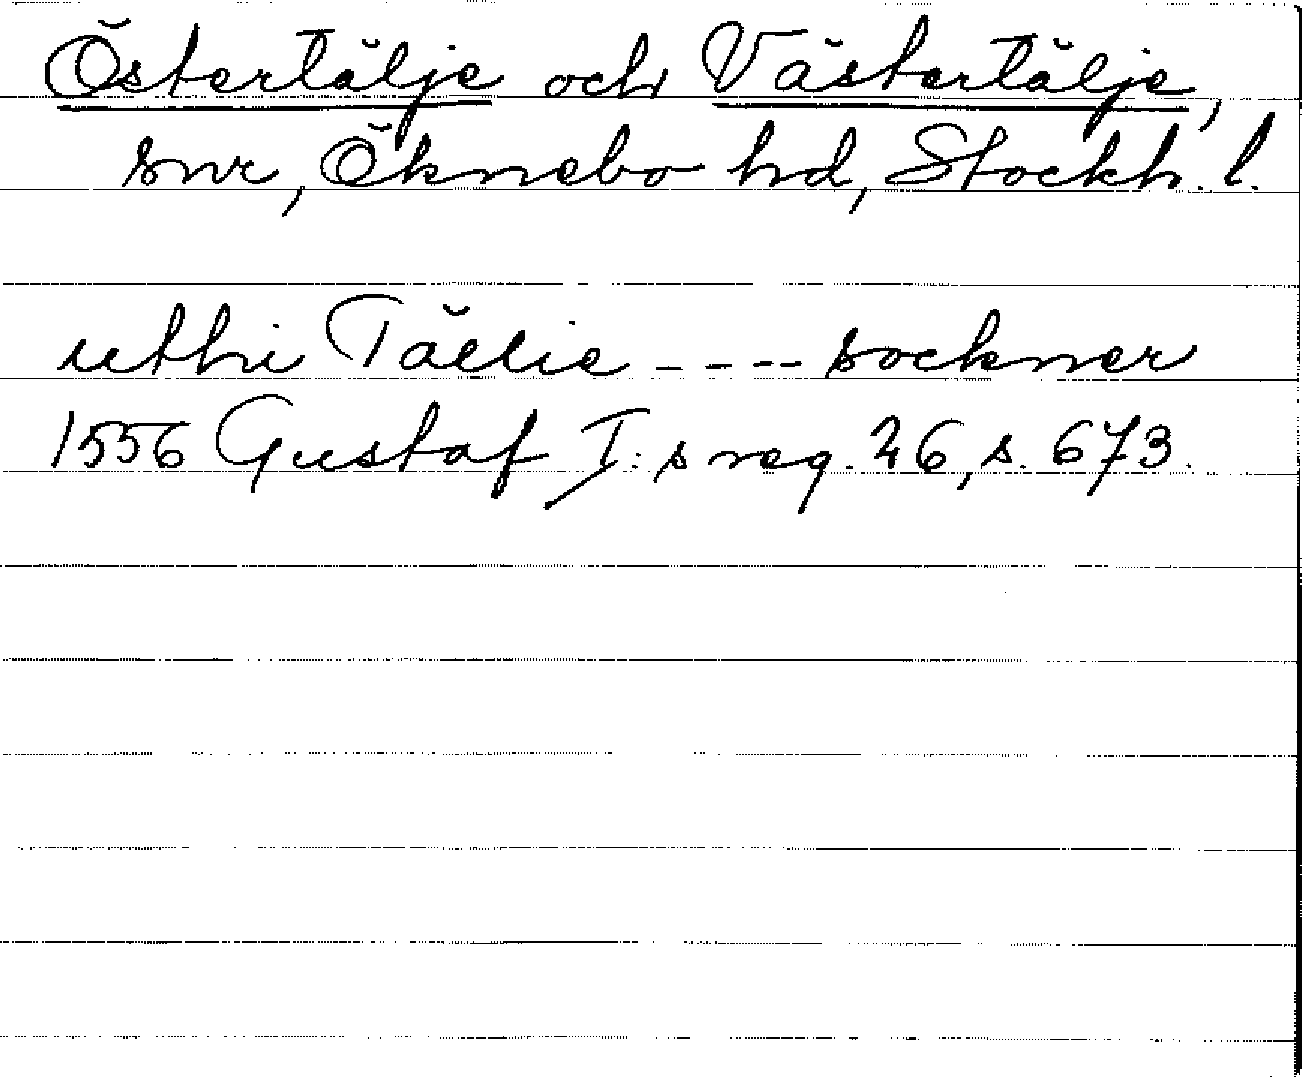 Östertälje och Västertälje,
snr, Öknebo hd, Stockh. l.
uthi Täelie ---- sockner
1556 Gustaf I:s reg. 26, s. 673.